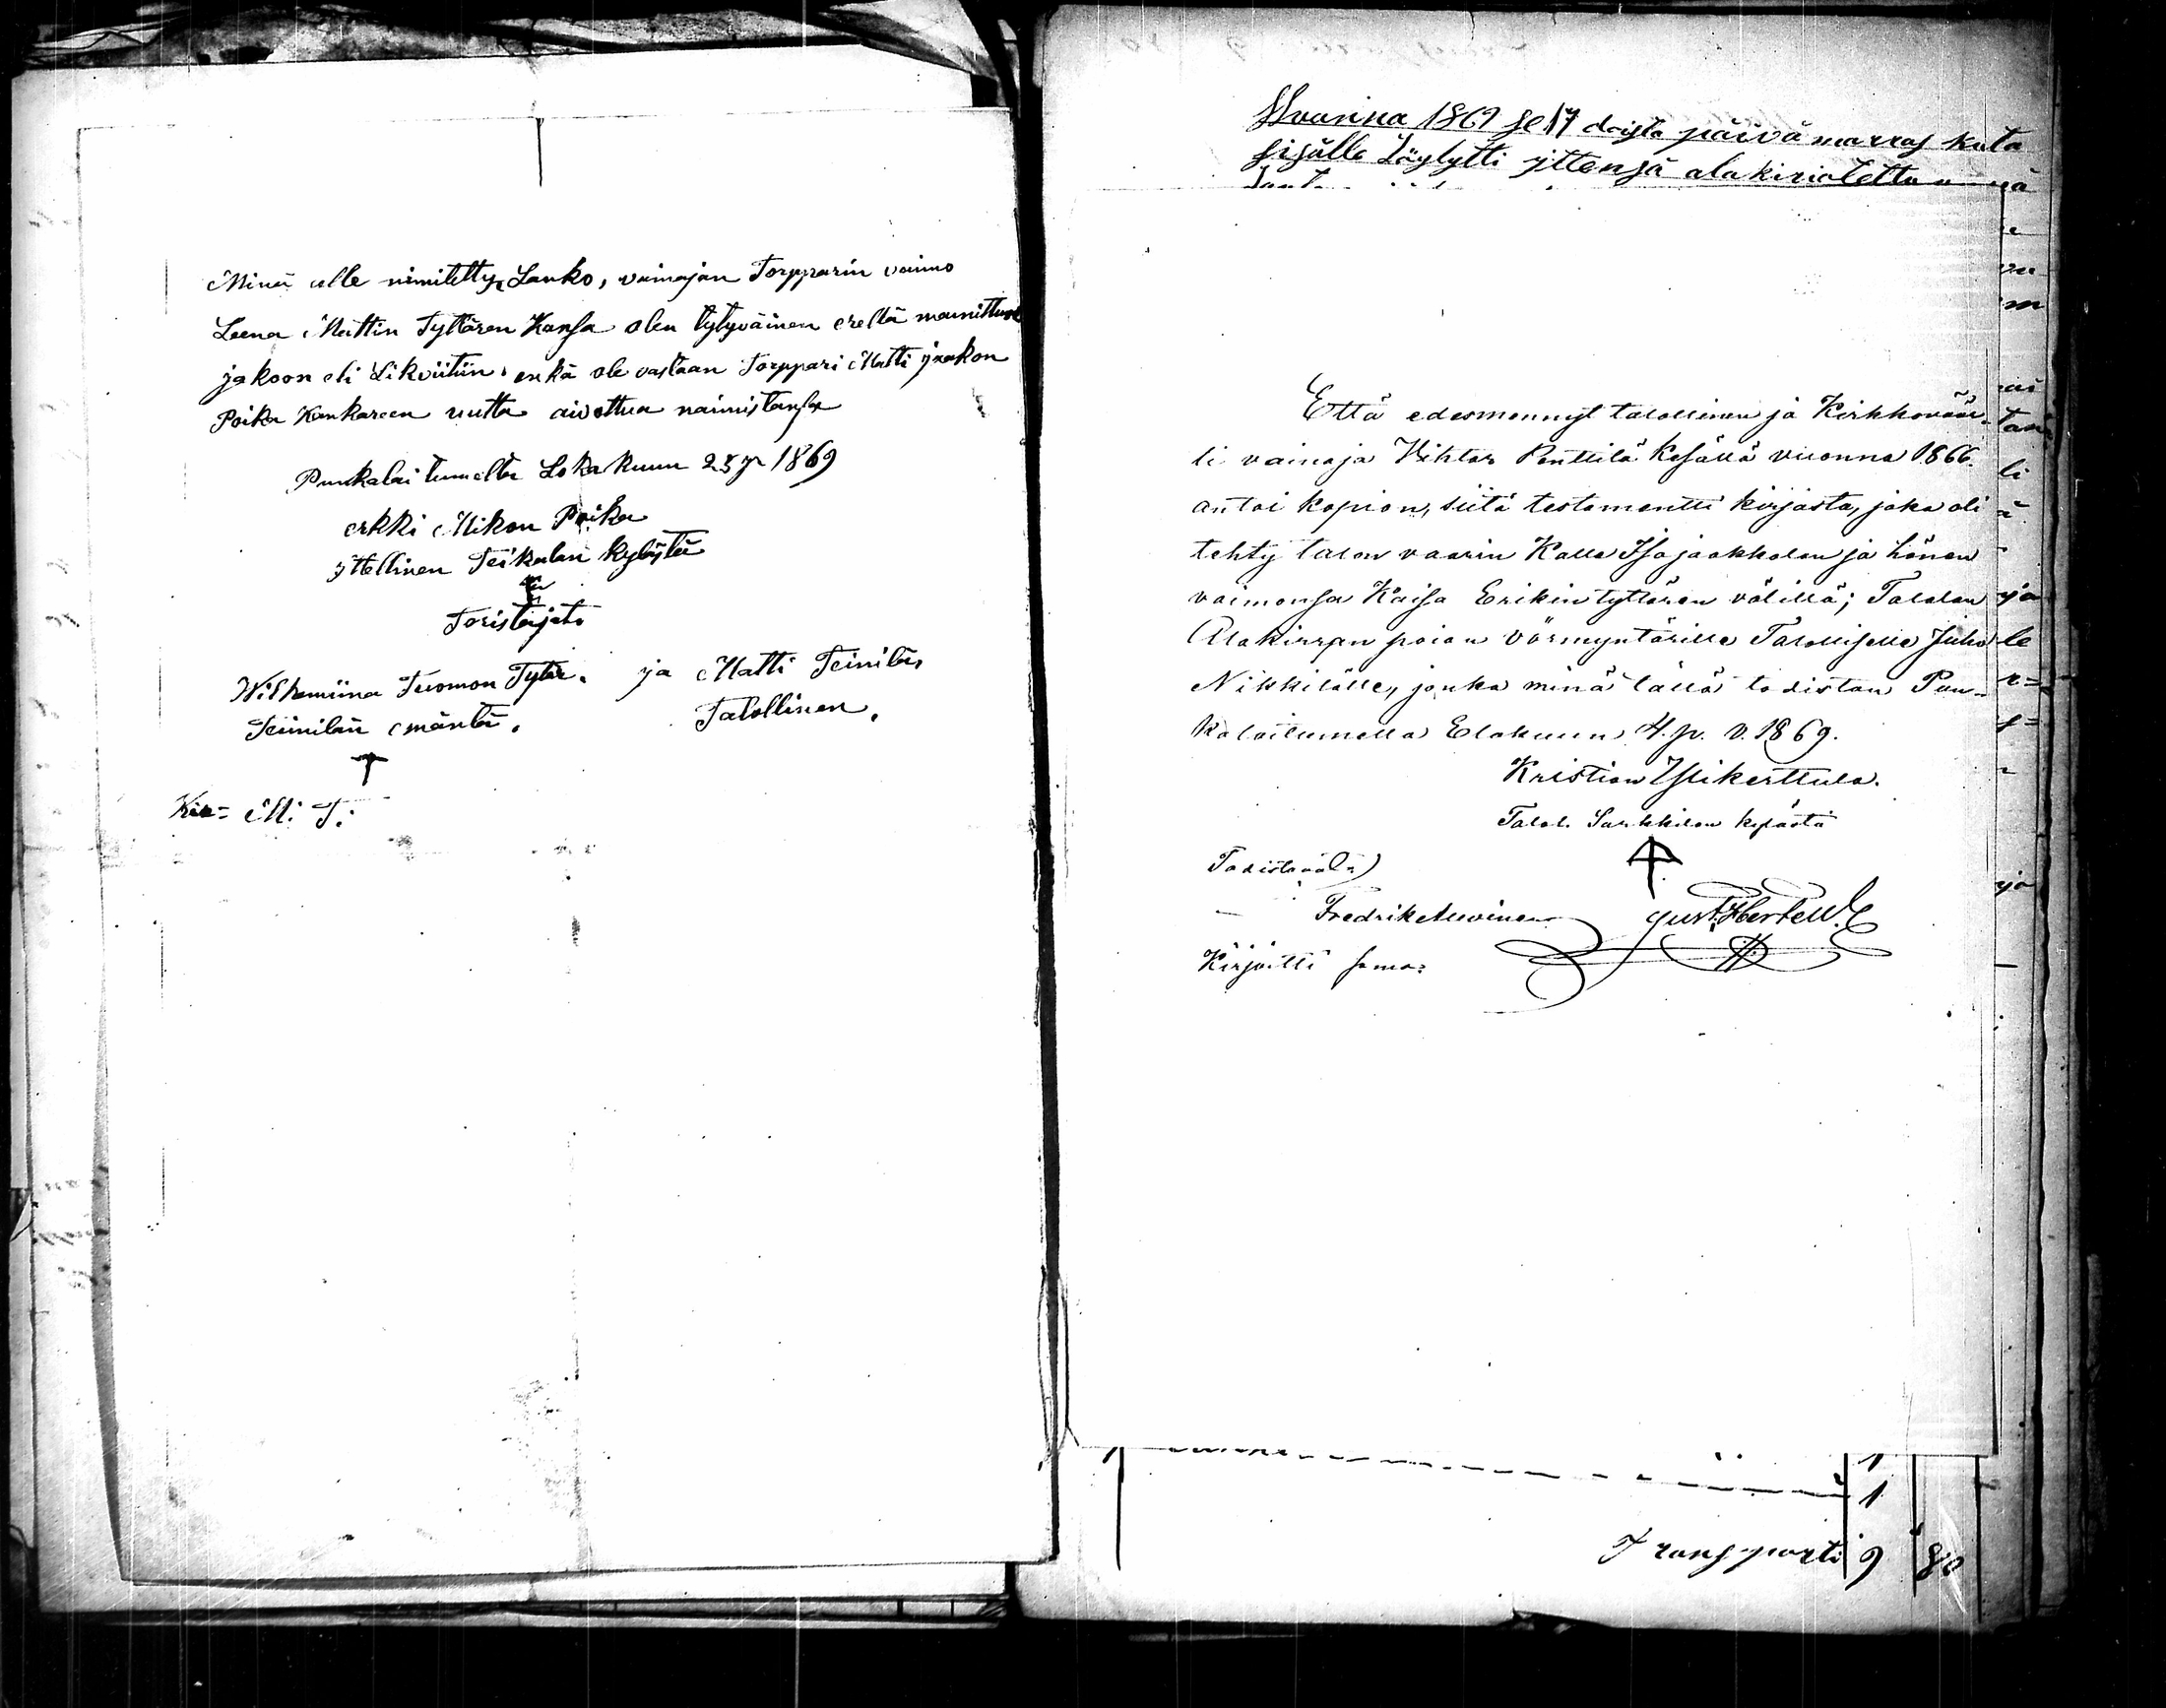 Minä alle nimitetty Lanko, vainajan Torpparin vaimo
Leena Mattin Tyttären Kansa olen tytyväinen eellä mainittuun
jakoon eli Likviitiin enkä ole vastaan Torppari Matti jaakon
Poika Kankareen uutta aivottua naimistansa
Punkalaitumella Lokakuun 25 p 1869
erkki Mikon Poika
yttellinen Teikalan kylästä
Toristajata
Wilhemiina Tuomon Tytär. ja Matti Teinilä,
Teinilän emäntä. Talollinen.
Kir= M. T.
Vuanna 1869 se 17 doista päivä marras kuta
sisälle Löytytti yttensä alakiriotettu
Että edesmennyt talollinen ja Kirkkoväär-
ti vainaja Viktor Penttilä Kesällä vuonna 1866.
antoi kopion, siitä testamentti kirjasta, joka oli
tehty talon vaarin Kalle Isojaakkolan ja hänen
vaimonsa Kaisa Erikintyttären välillä; Talolan
Alakirran pojan Vörmyntärille Talolliselle Juho
Nikkilälle, jonka minä tällä todistan Pun-
kalaitumella Elokuun 4. p. v. 1869.
Kristian Ylikerttula.
Talol. Sarkkilan kylästä
Todistavat:
Fredrik Gust. Hertell.
Kirjoitti sama:
Transporti 9 80